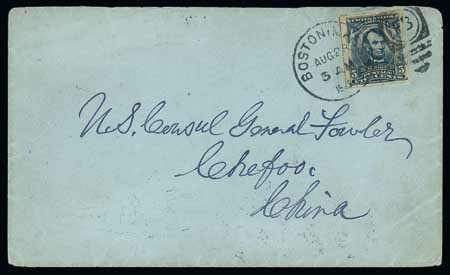 BOSTON, M
AUG 28
5 A
3
5 5
U.S. Consul General Fowler,
Chefoo.
China